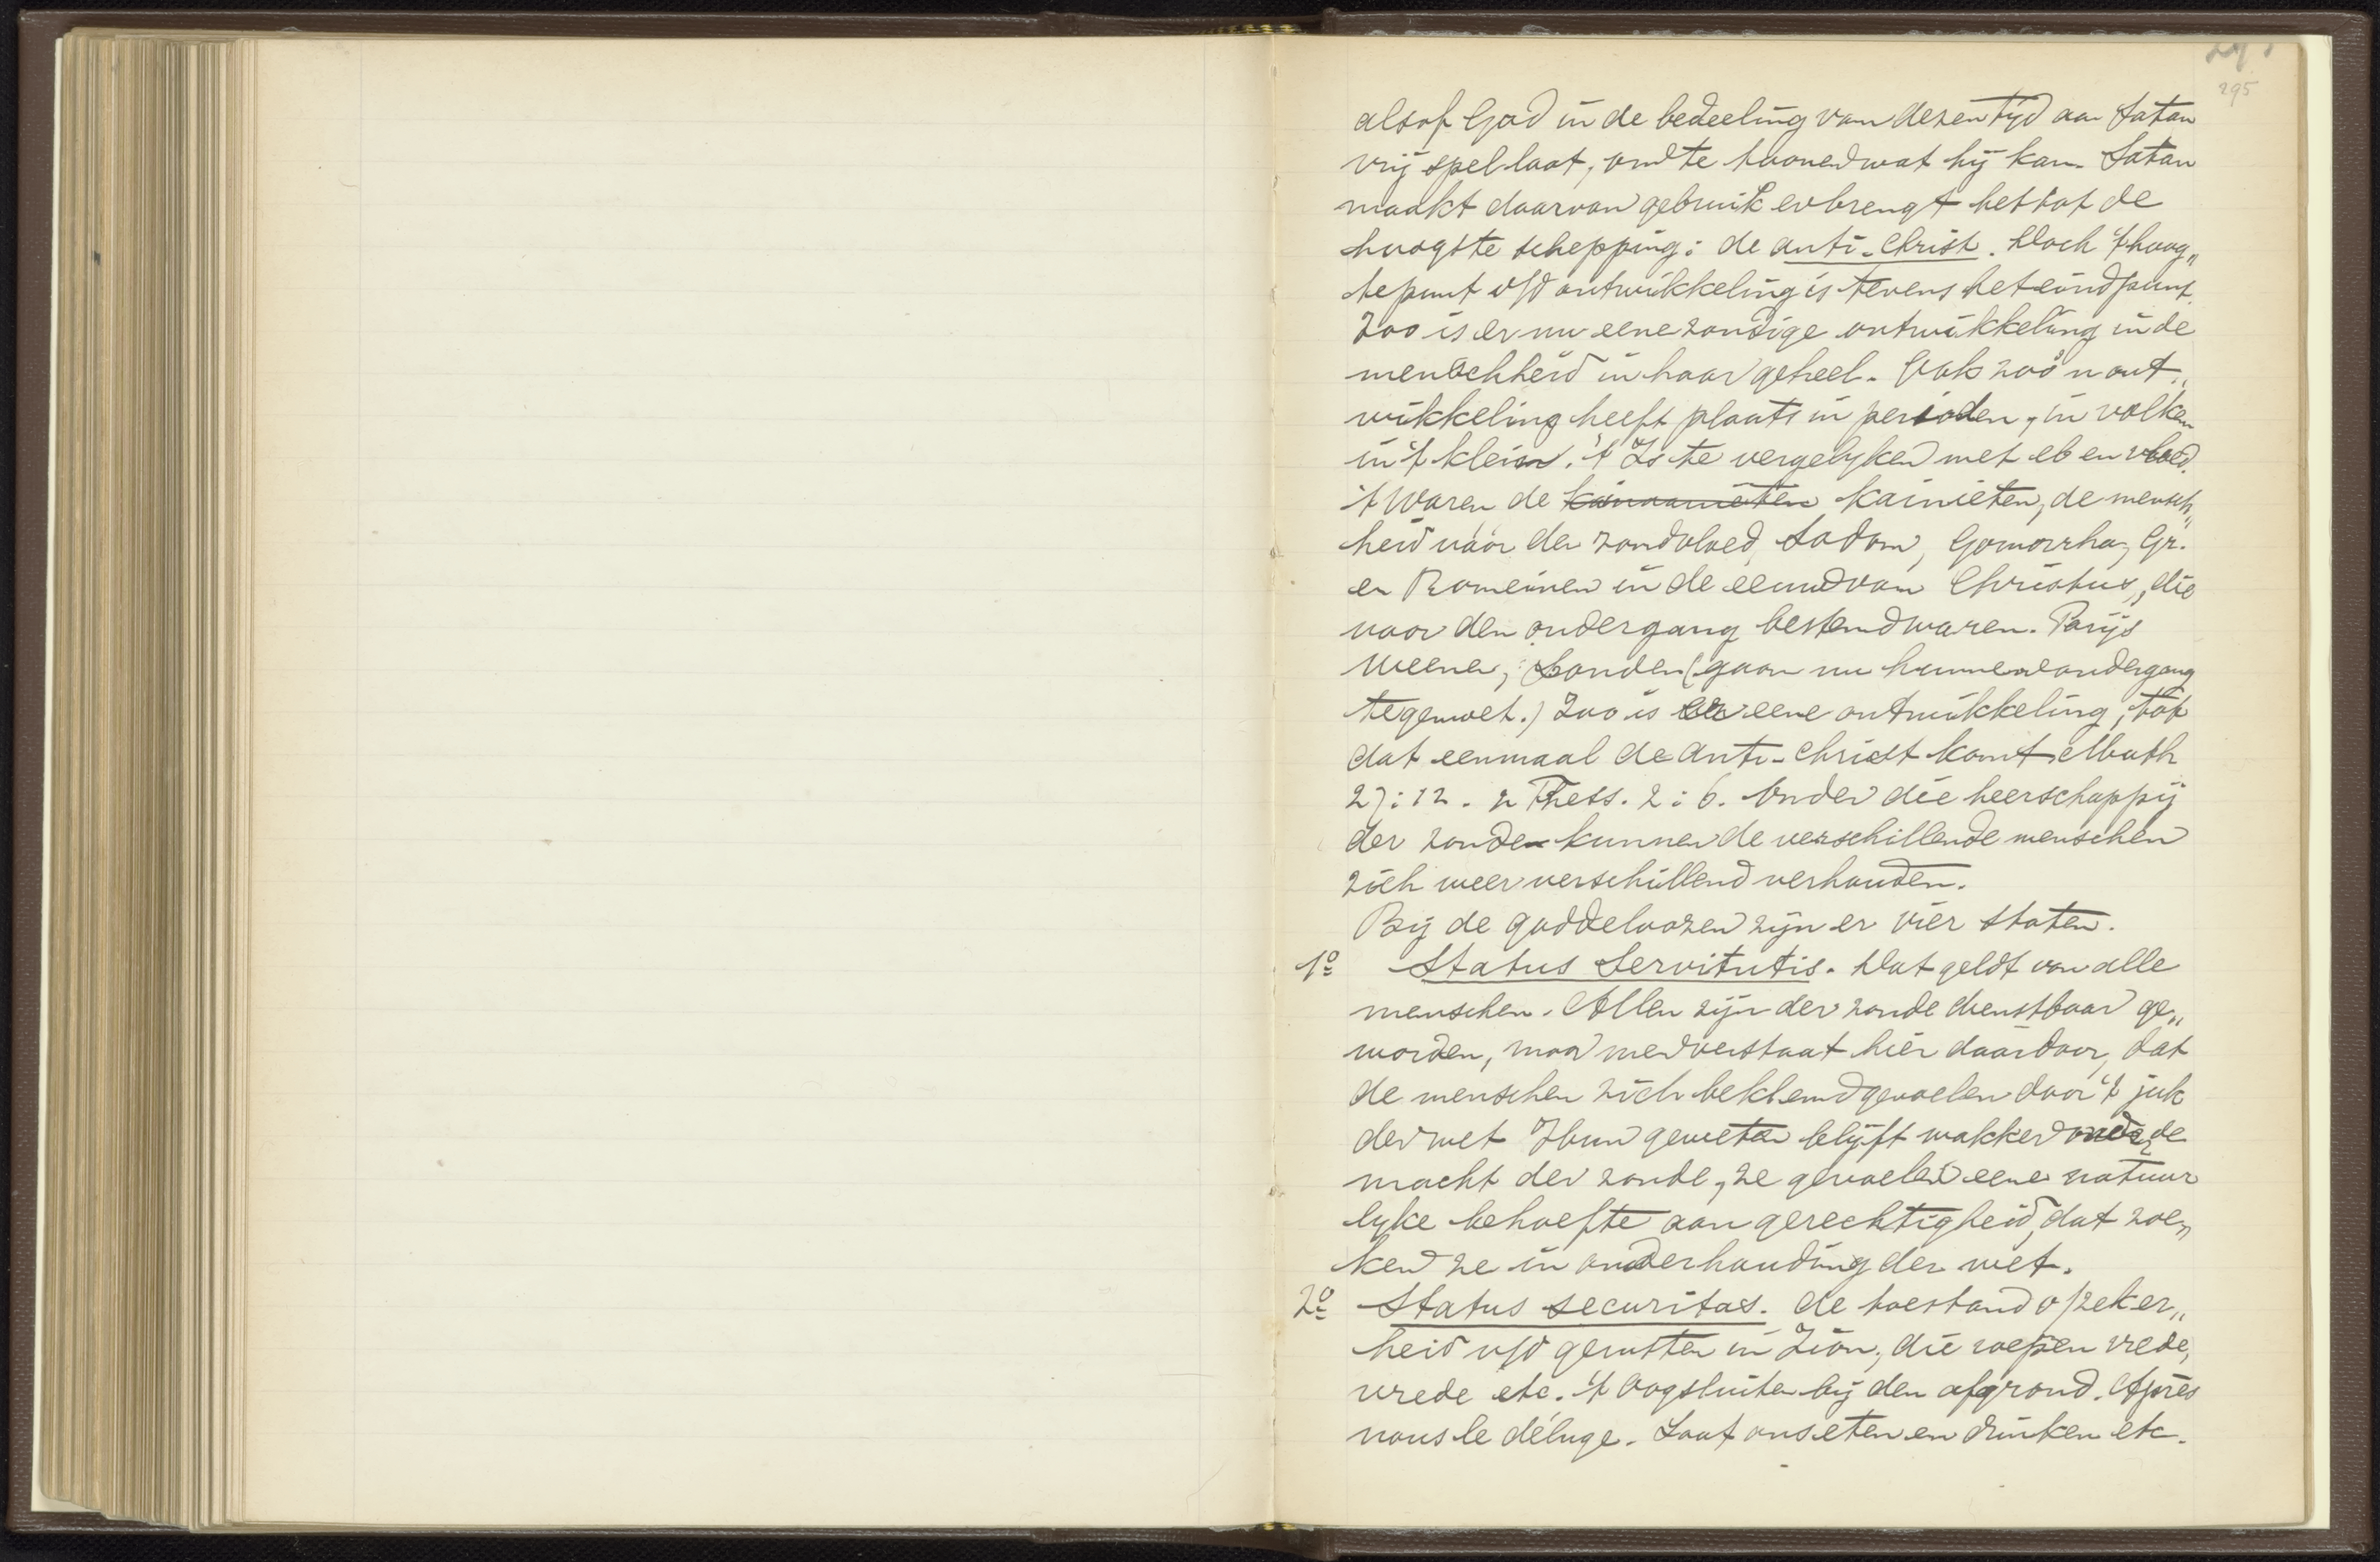 295
alsof God in de bedeeling van dezen tijd aan Satan
vrij spel laat, om te toonen wat hij kan. Satan
maakt daarvan gebruik en brengt het tot de
hoogste schepping: de anti-Christ. Doch 't hoog„
tepunt v/d ontwikkeling is tevens het eindpunt.
Zoo is er nu eene zondige ontwikkeling in de
menschheid in haar geheel. Ook zoo'n ont„
wikkeling heeft plaats in perioden, in volken
in 't klein. 't Is te vergelyken met eb en vloed.
't Waren de Kainieten, de mensch„
heid vóór den zondvloed, Sodom, Gomorrha, Gr.
en Romeinen in de eeuw van Christus, die
voor den ondergang bestemd waren. Parijs
Weenen, Londen (gaan nu hunnen ondergang
tegemoet.) Zoo is er eene ontwikkeling, tot
dat eenmaal de Anti-Christ komt Math
27:12. 2 Thess. 2:6. Onder die heerschappij
der zonde kunnen de verschillende menschen
zich weer verschillend verhouden.
Bij de goddeloozen zijn er vier staten.
1o Status Servitutis. Dat geldt van alle
menschen. Allen zijn der zonde dienstbaar ge„
worden, maar men verstaat hier daardoor, dat
de menschen zich beklemd gevoelen door 't juk
der wet. Hun geweten blijft wakker onder de
macht der zonde, ze gevoelen eene natuur
lyke behoefte aan gerechtigheid, dat zoe„
ken ze in onderhouding der wet.
2o Status securitas. de toestand v/zeker„
heid v/d gerusten in Zion, die roepen vrede,
vrede etc. 't Oogsluiten bij den afgrond. Après
nous le déluge. Laat ons eten en drinken etc.